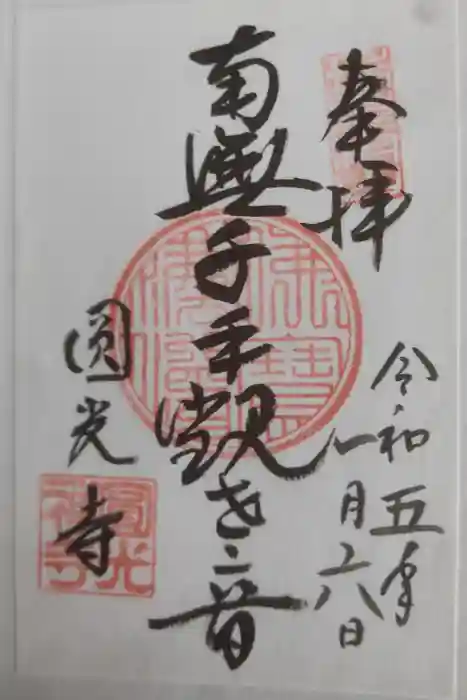 奉拝
令和五年
一月二八日
南無千手観世音
圓光寺